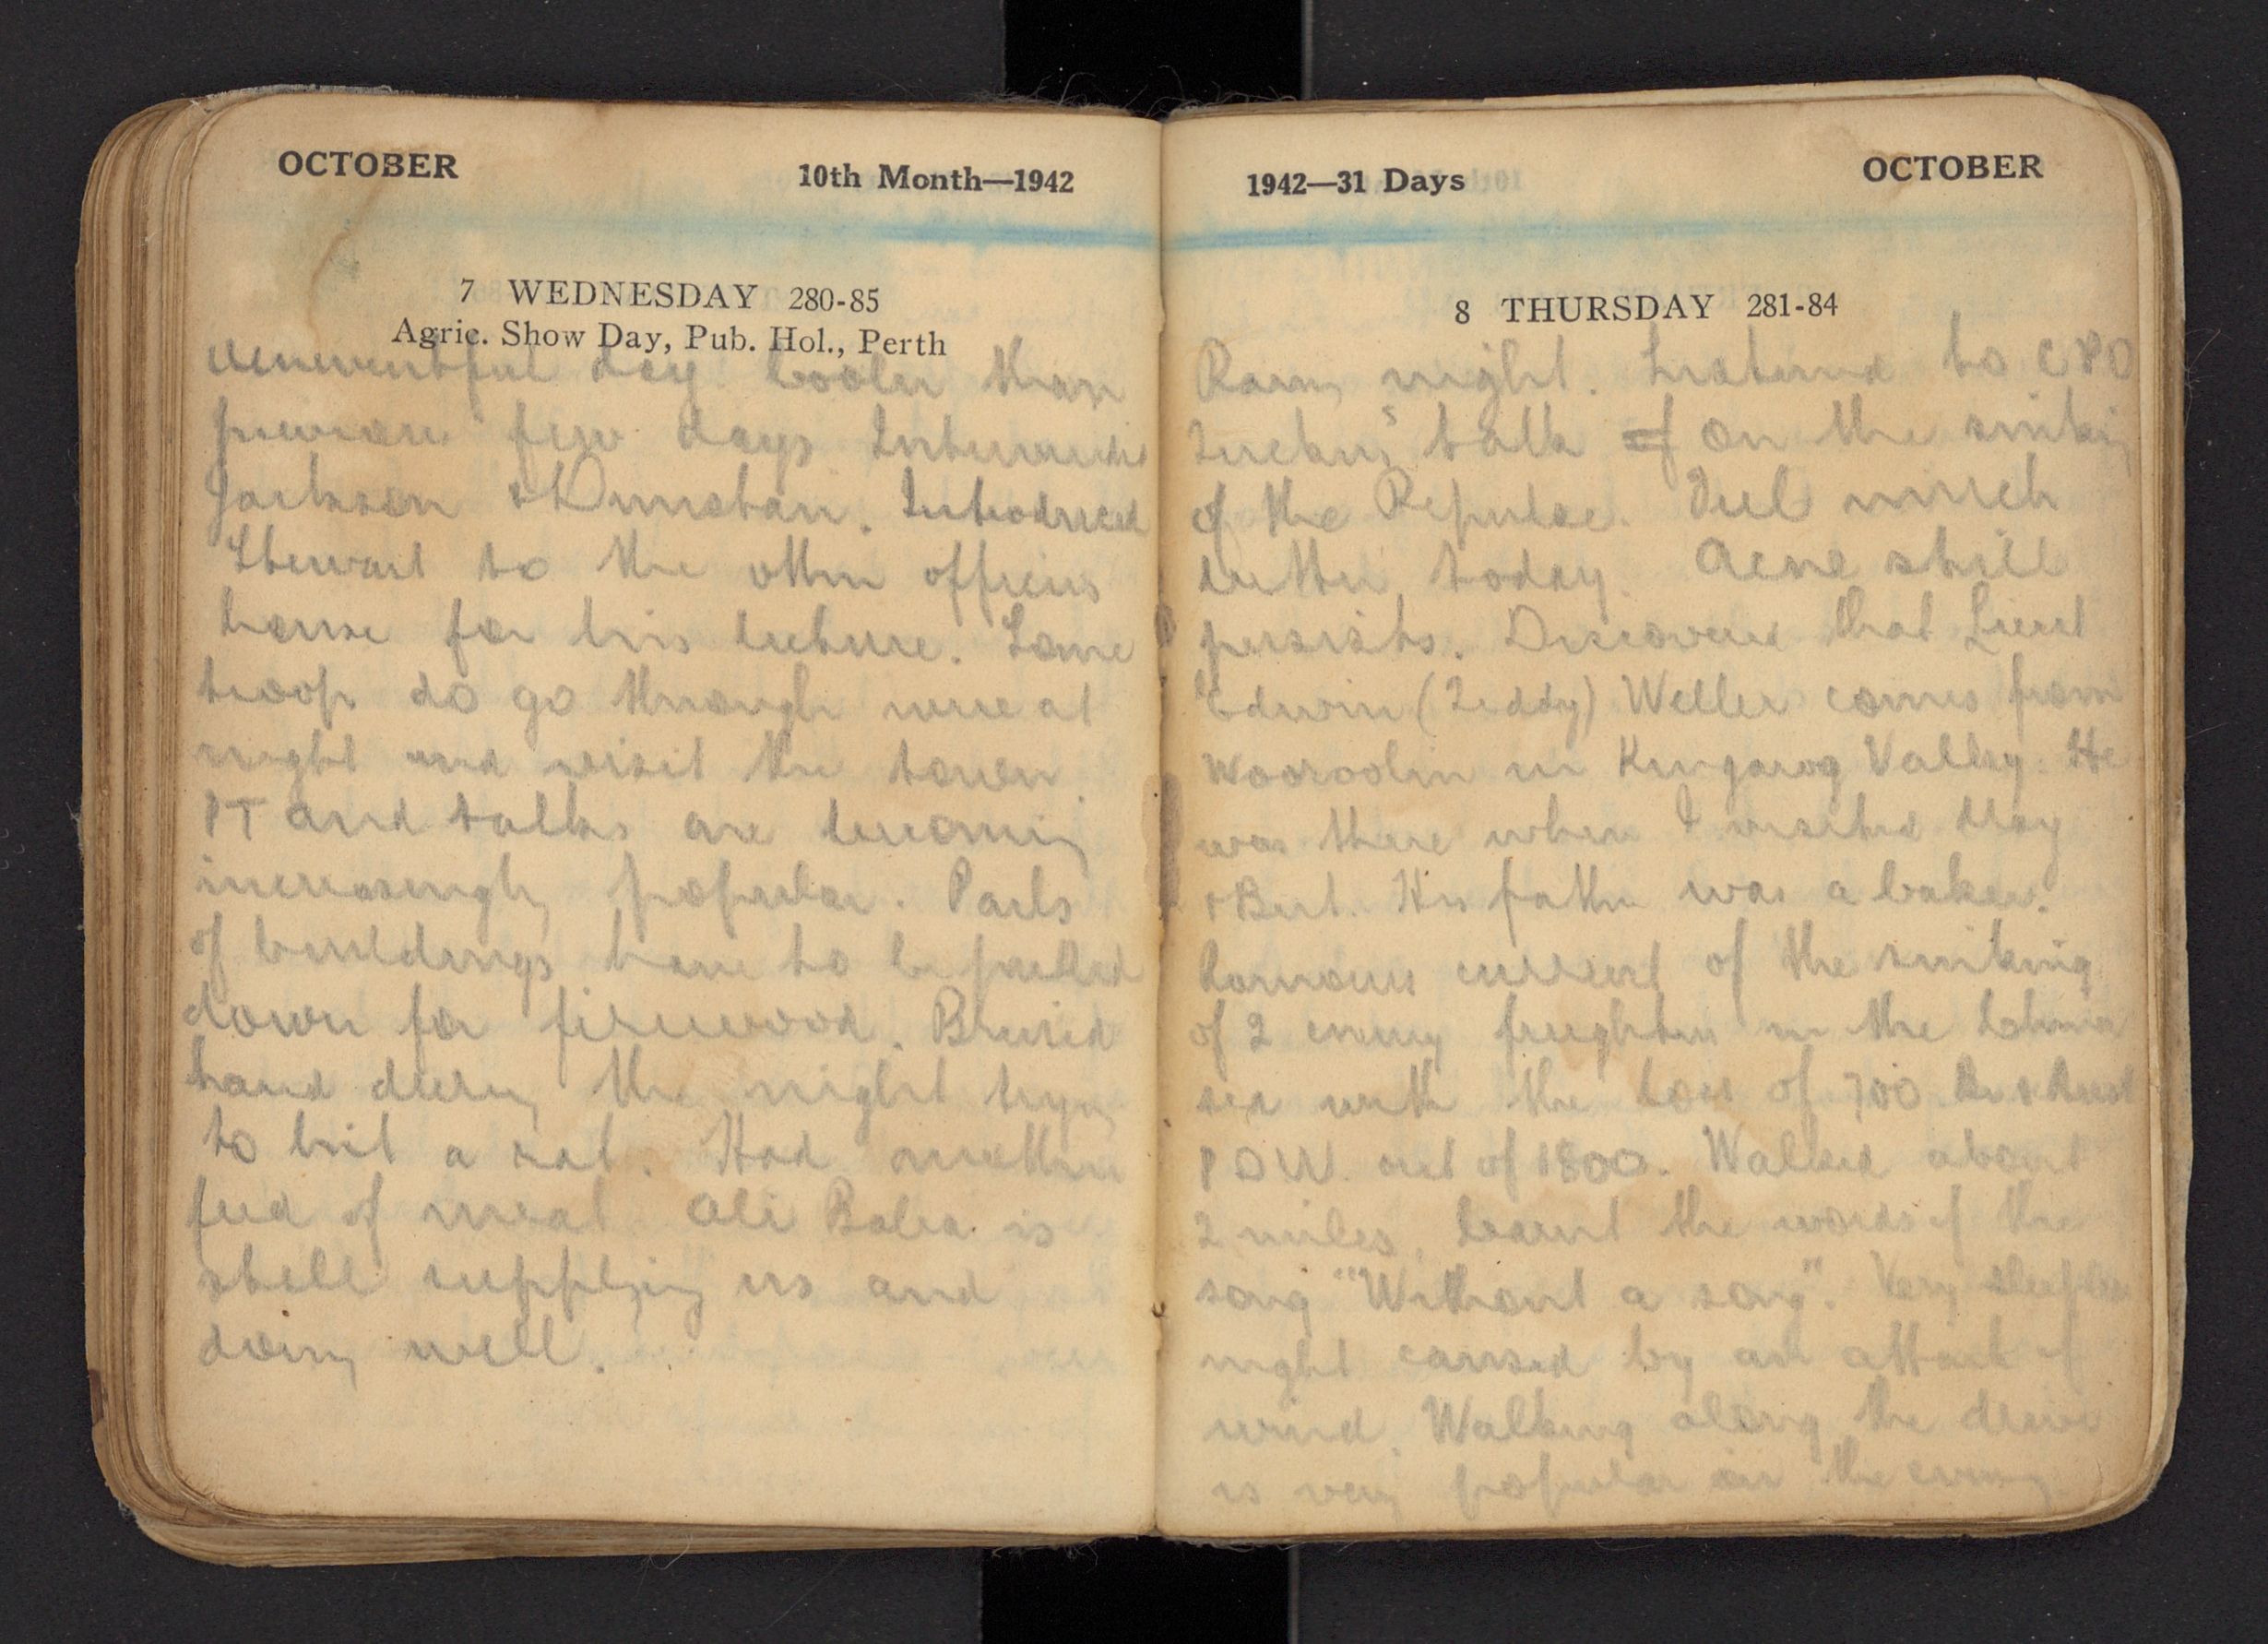 OCTOBER 10th Month—1942
7 WEDNESDAY 280-85
Agric. Show Day, Pub. Hol., Perth
Uneventful day. Cooler than
previous few days Interviewed
Jackson & Dunstan. Introduced
Stewart to the other officers
house for his lecture. Some
troops do go through wire at
night and visit the town.
PT and talks are becoming
increasingly popular. Parts
of buildings have to be pulled
down for firewood. Bruised
hand during the night trying
to hit a rat. Had another
feed of meat. Ali Baba is
still supplying us and
doing well.
1942—31 Days OCTOBER
8 THURSDAY 281-84
Rainy night. Listened to CPO
talk of on the sinking
of the Repulse. Feel much
better today. Acne still
persists. Discovered that Lieut
Edwin (Teddy) Weller comes from
Wooroolin in Kingaroy Valley. He
was there when I visited May
& Bert. His father was a baker.
Rumours current of the sinking
of 2 enemy freighters in the China
sea with the loss of 700 Br & Aust
POW. out of 1800. Walked about
2 miles. Learnt the words of the
song "Without a song". Very sleepless
night caused by an attack of
wind. Walking along the drive
is very popular in the evening